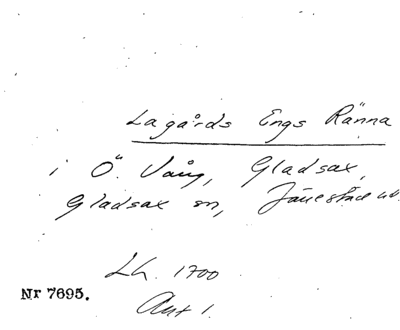 Lagårds Engs Ränna
i Ö. Vång, Gladsax,
Gladsax sn, Järrestads hd.
Lh. 1700
Nr 7695.
Akt 1.